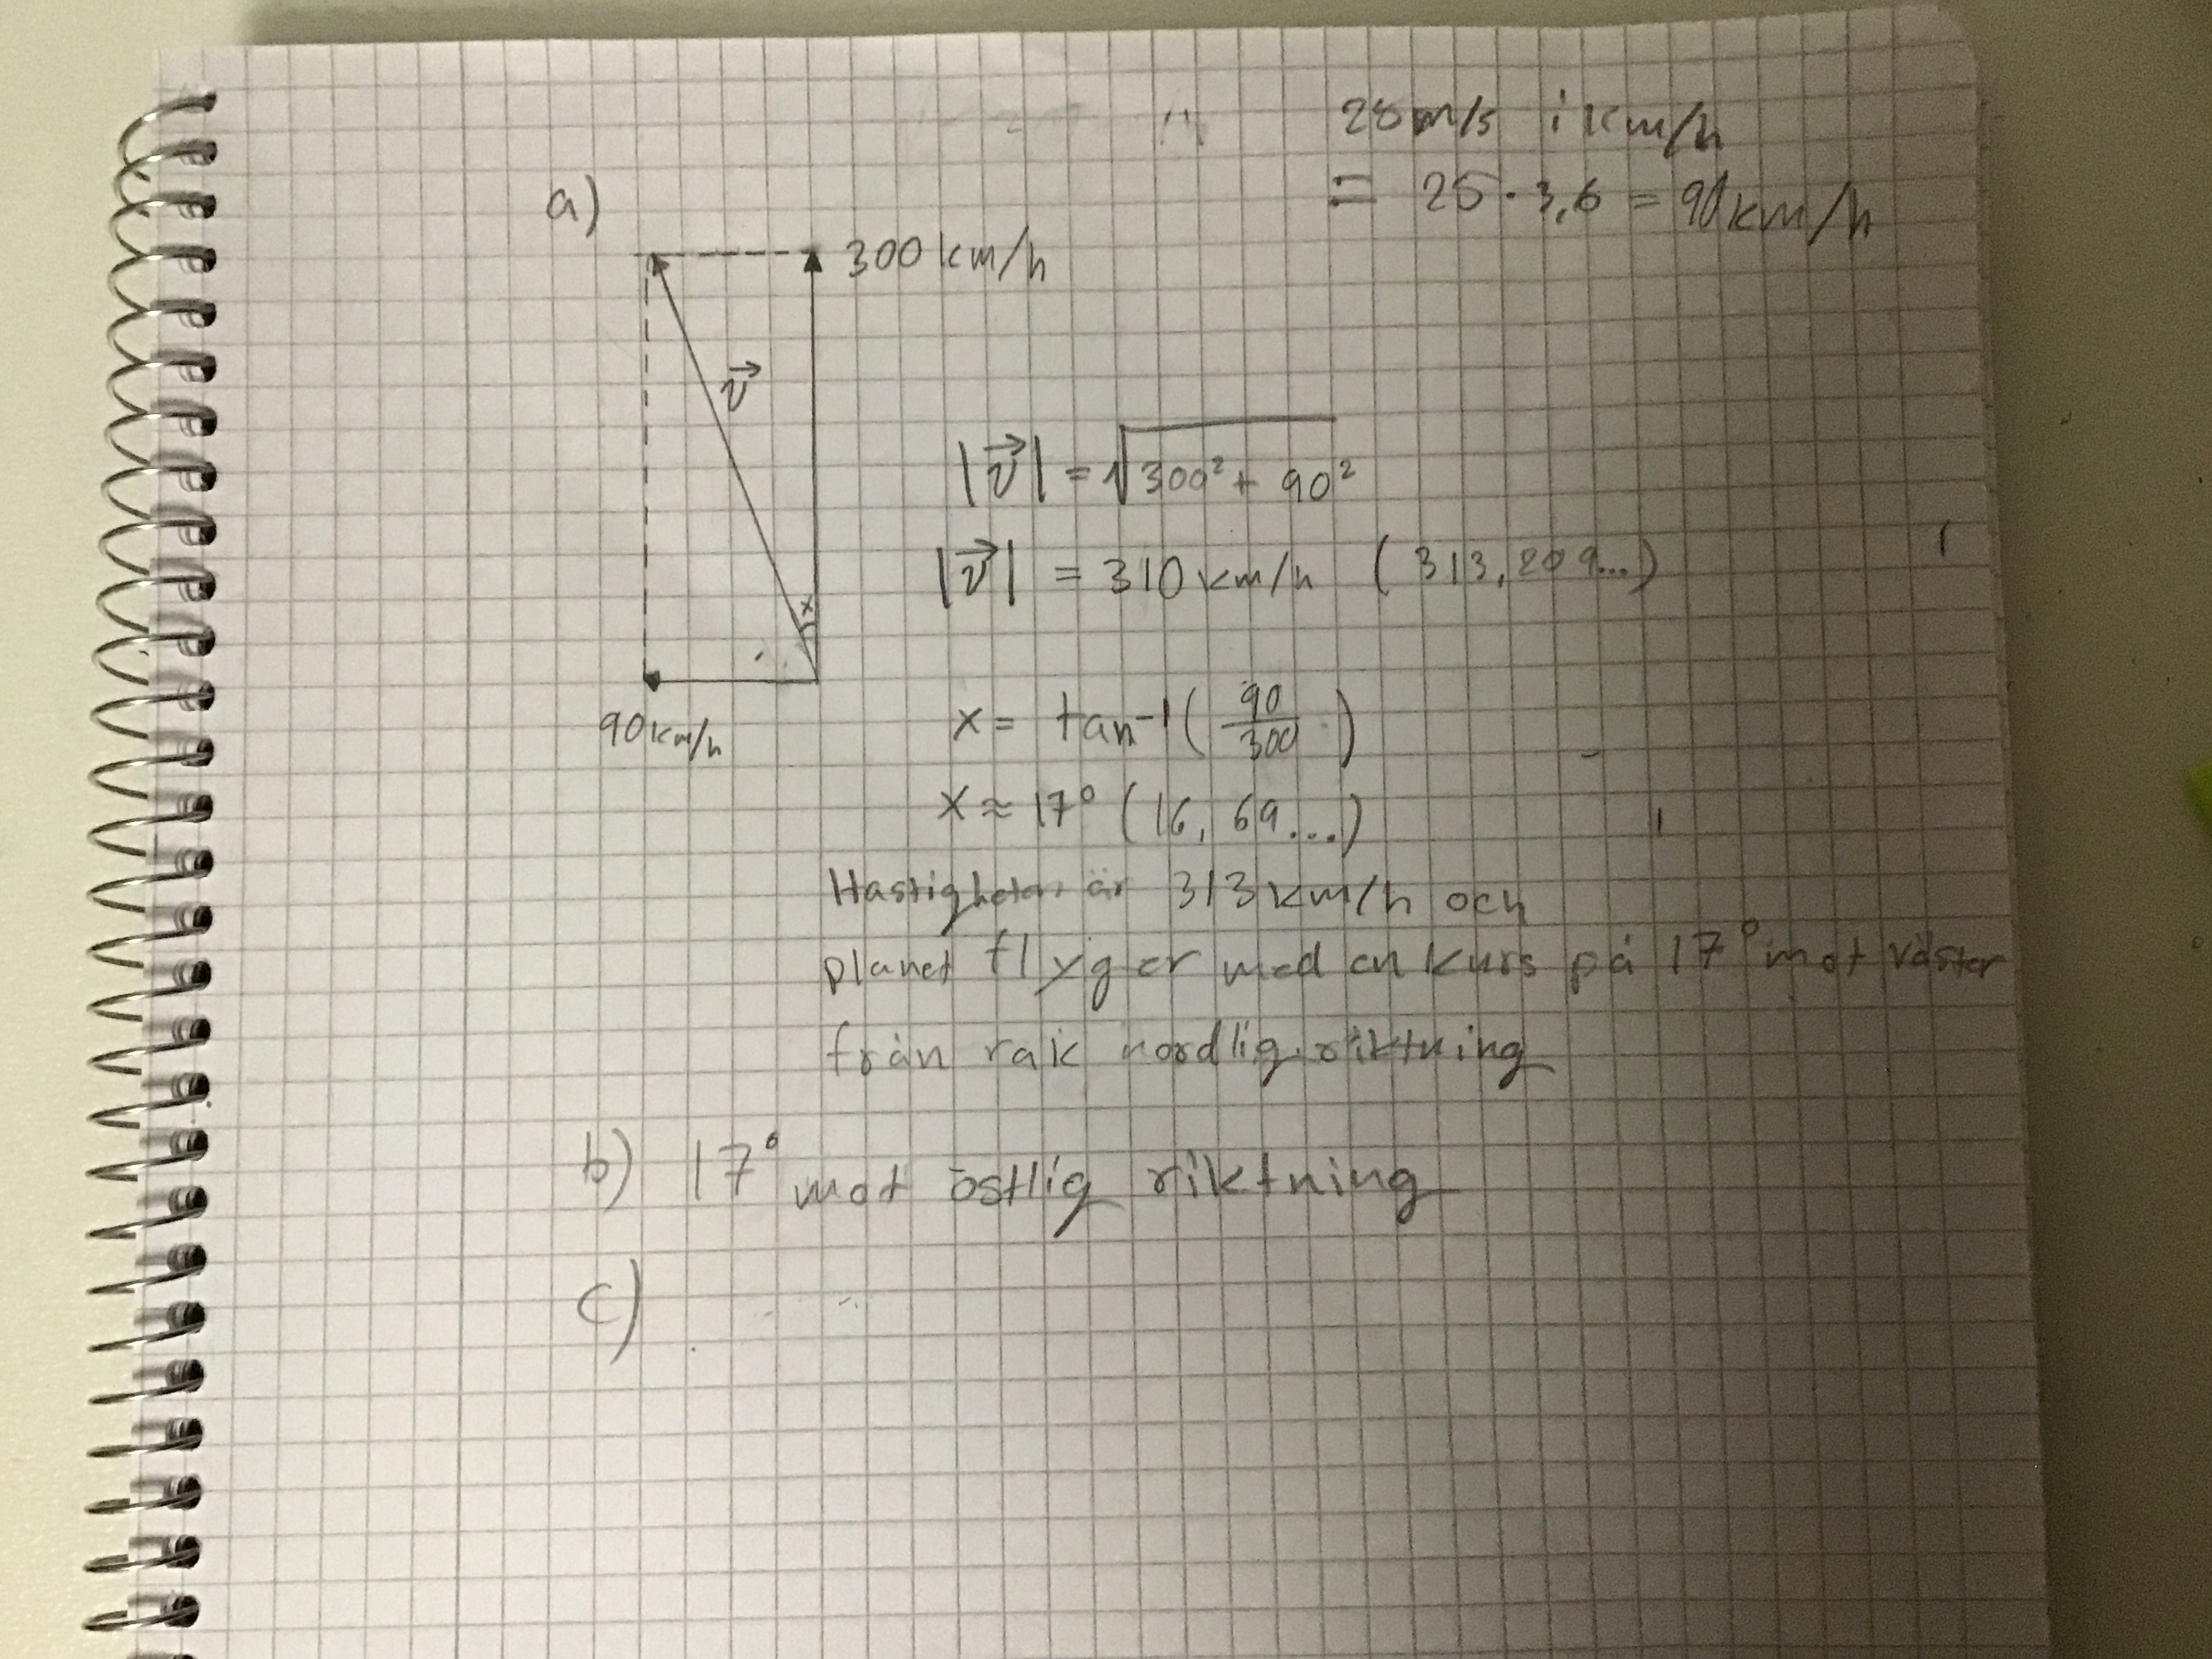 28 m/s i km/h
= 25 · 3,6 = 90 km/h
a)
300 km/h
v⃗
|v⃗| = √300² + 90²
|v⃗| = 310 km/h (313,209...)
x
90 km/h
x = tan⁻¹(90/300)
x ≈ 17° (16,69...)
Hastigheten är 313 km/h och
planet flyger med en kurs på 17° mot väster
från rak nordlig riktning
b) 17° mot östlig riktning
c)